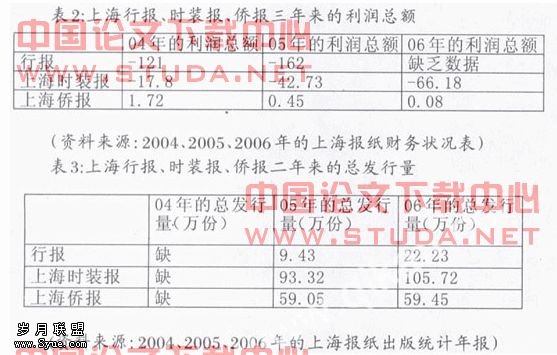 表2:上海行报、时装报、侨报三年来的利润总额
04年的利润总额 05年的利润总额 06年的利润总额
行报 -121 -162 缺乏数据
上海时装报 -17.8 -42.73 -66.18
上海侨报 1.72 0.45 0.08
中国论文下载中心
WWW.STUDA.NET
(资料来源:2004、2005、2006年的上海报纸财务状况表)
表3:上海行报、时装报、侨报二年来的总发行量
04年的总发行量(万份) 05年的总发行量(万份) 06年的总发行量(万份)
行报 缺 9.43 22.23
上海时装报 缺 93.32 105.72
上海侨报 缺 59.05 59.45
中国论文下载中心
WWW.STUDA.NET
料来源:2004、2005、2006年的上海报纸出版统计年报)
岁月联盟
www.Syue.com